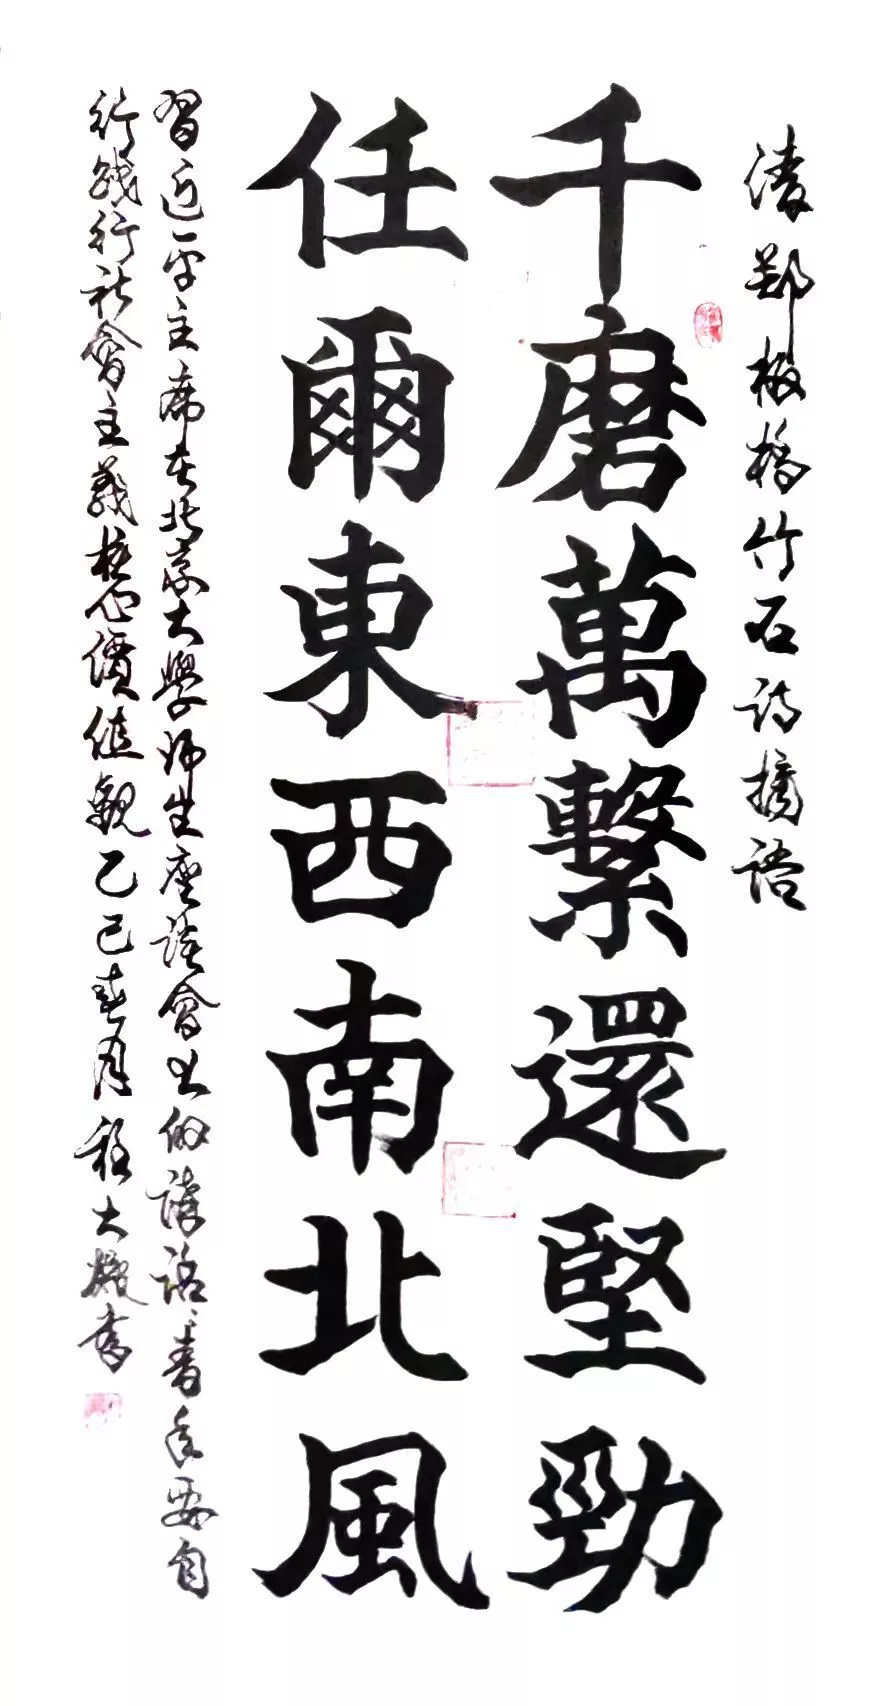 清鄭板橋竹石詩摘語
千磨萬繫還堅勁
任爾東西南北風
習近平主席在北京大學师生座談會上做講話青年要自
行踐行社會主義核心價值觀乙巳春月程大書